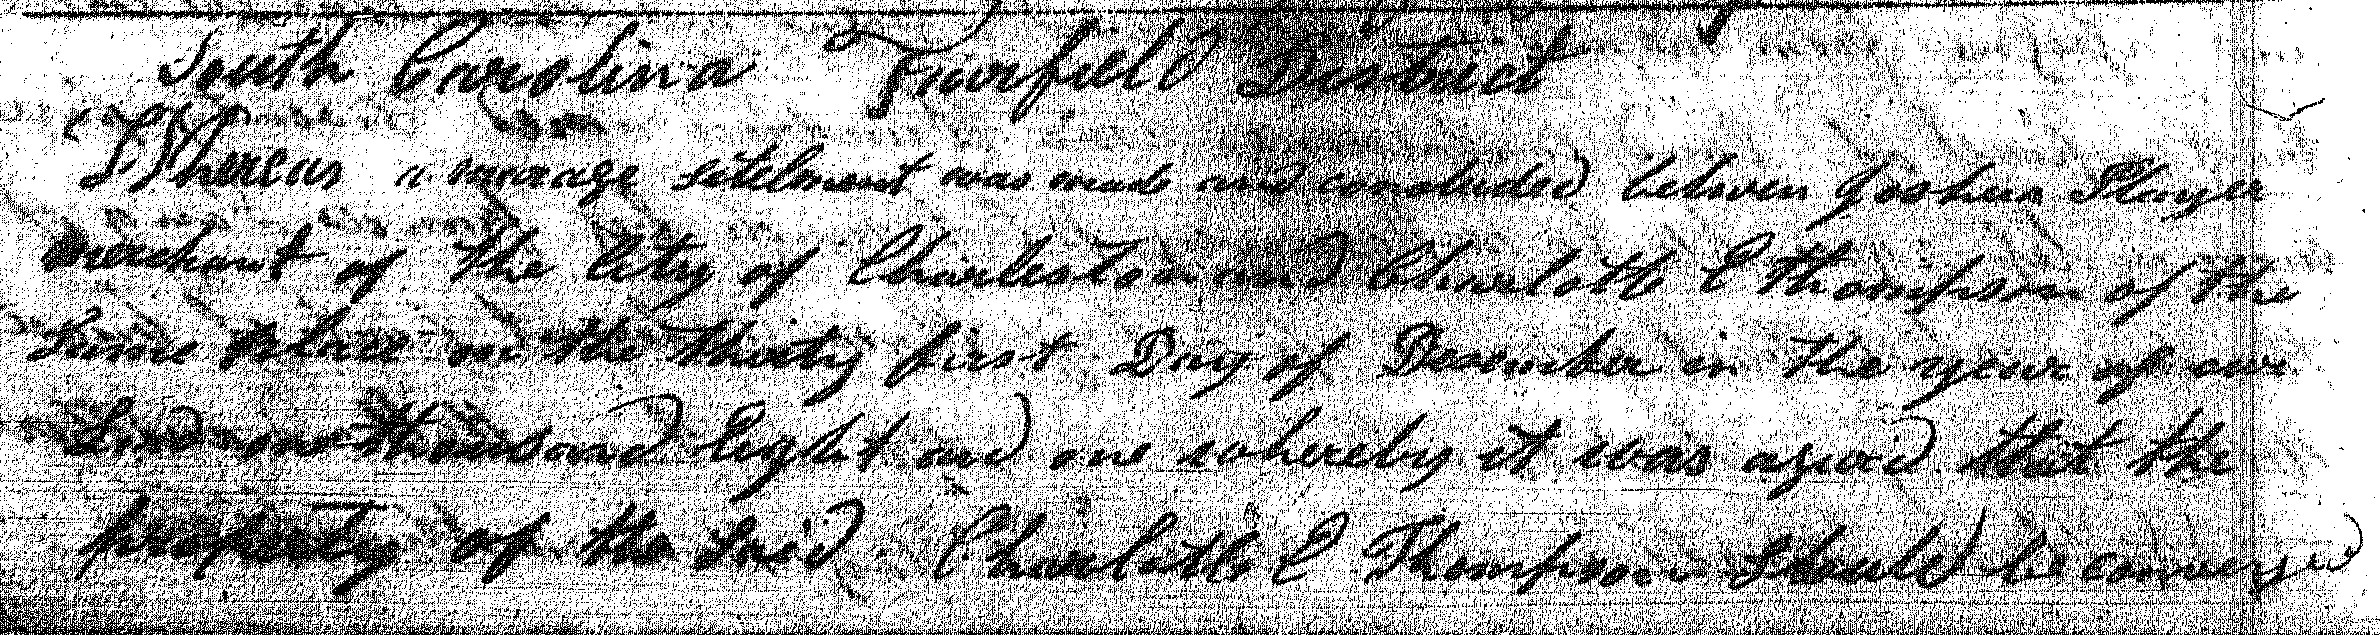 South Carolina Fairfield District
Whereas a marage sitelment was made and concluded betwen Joshua Player
merchant of the City of Charleston and Charlotte E thompson of the
Same place on the thirty first Day of December in the year of our
Lord one thousand Eight and one whereby it was agreed that the
property of the Said Charlotte E Thompson should be conveyed